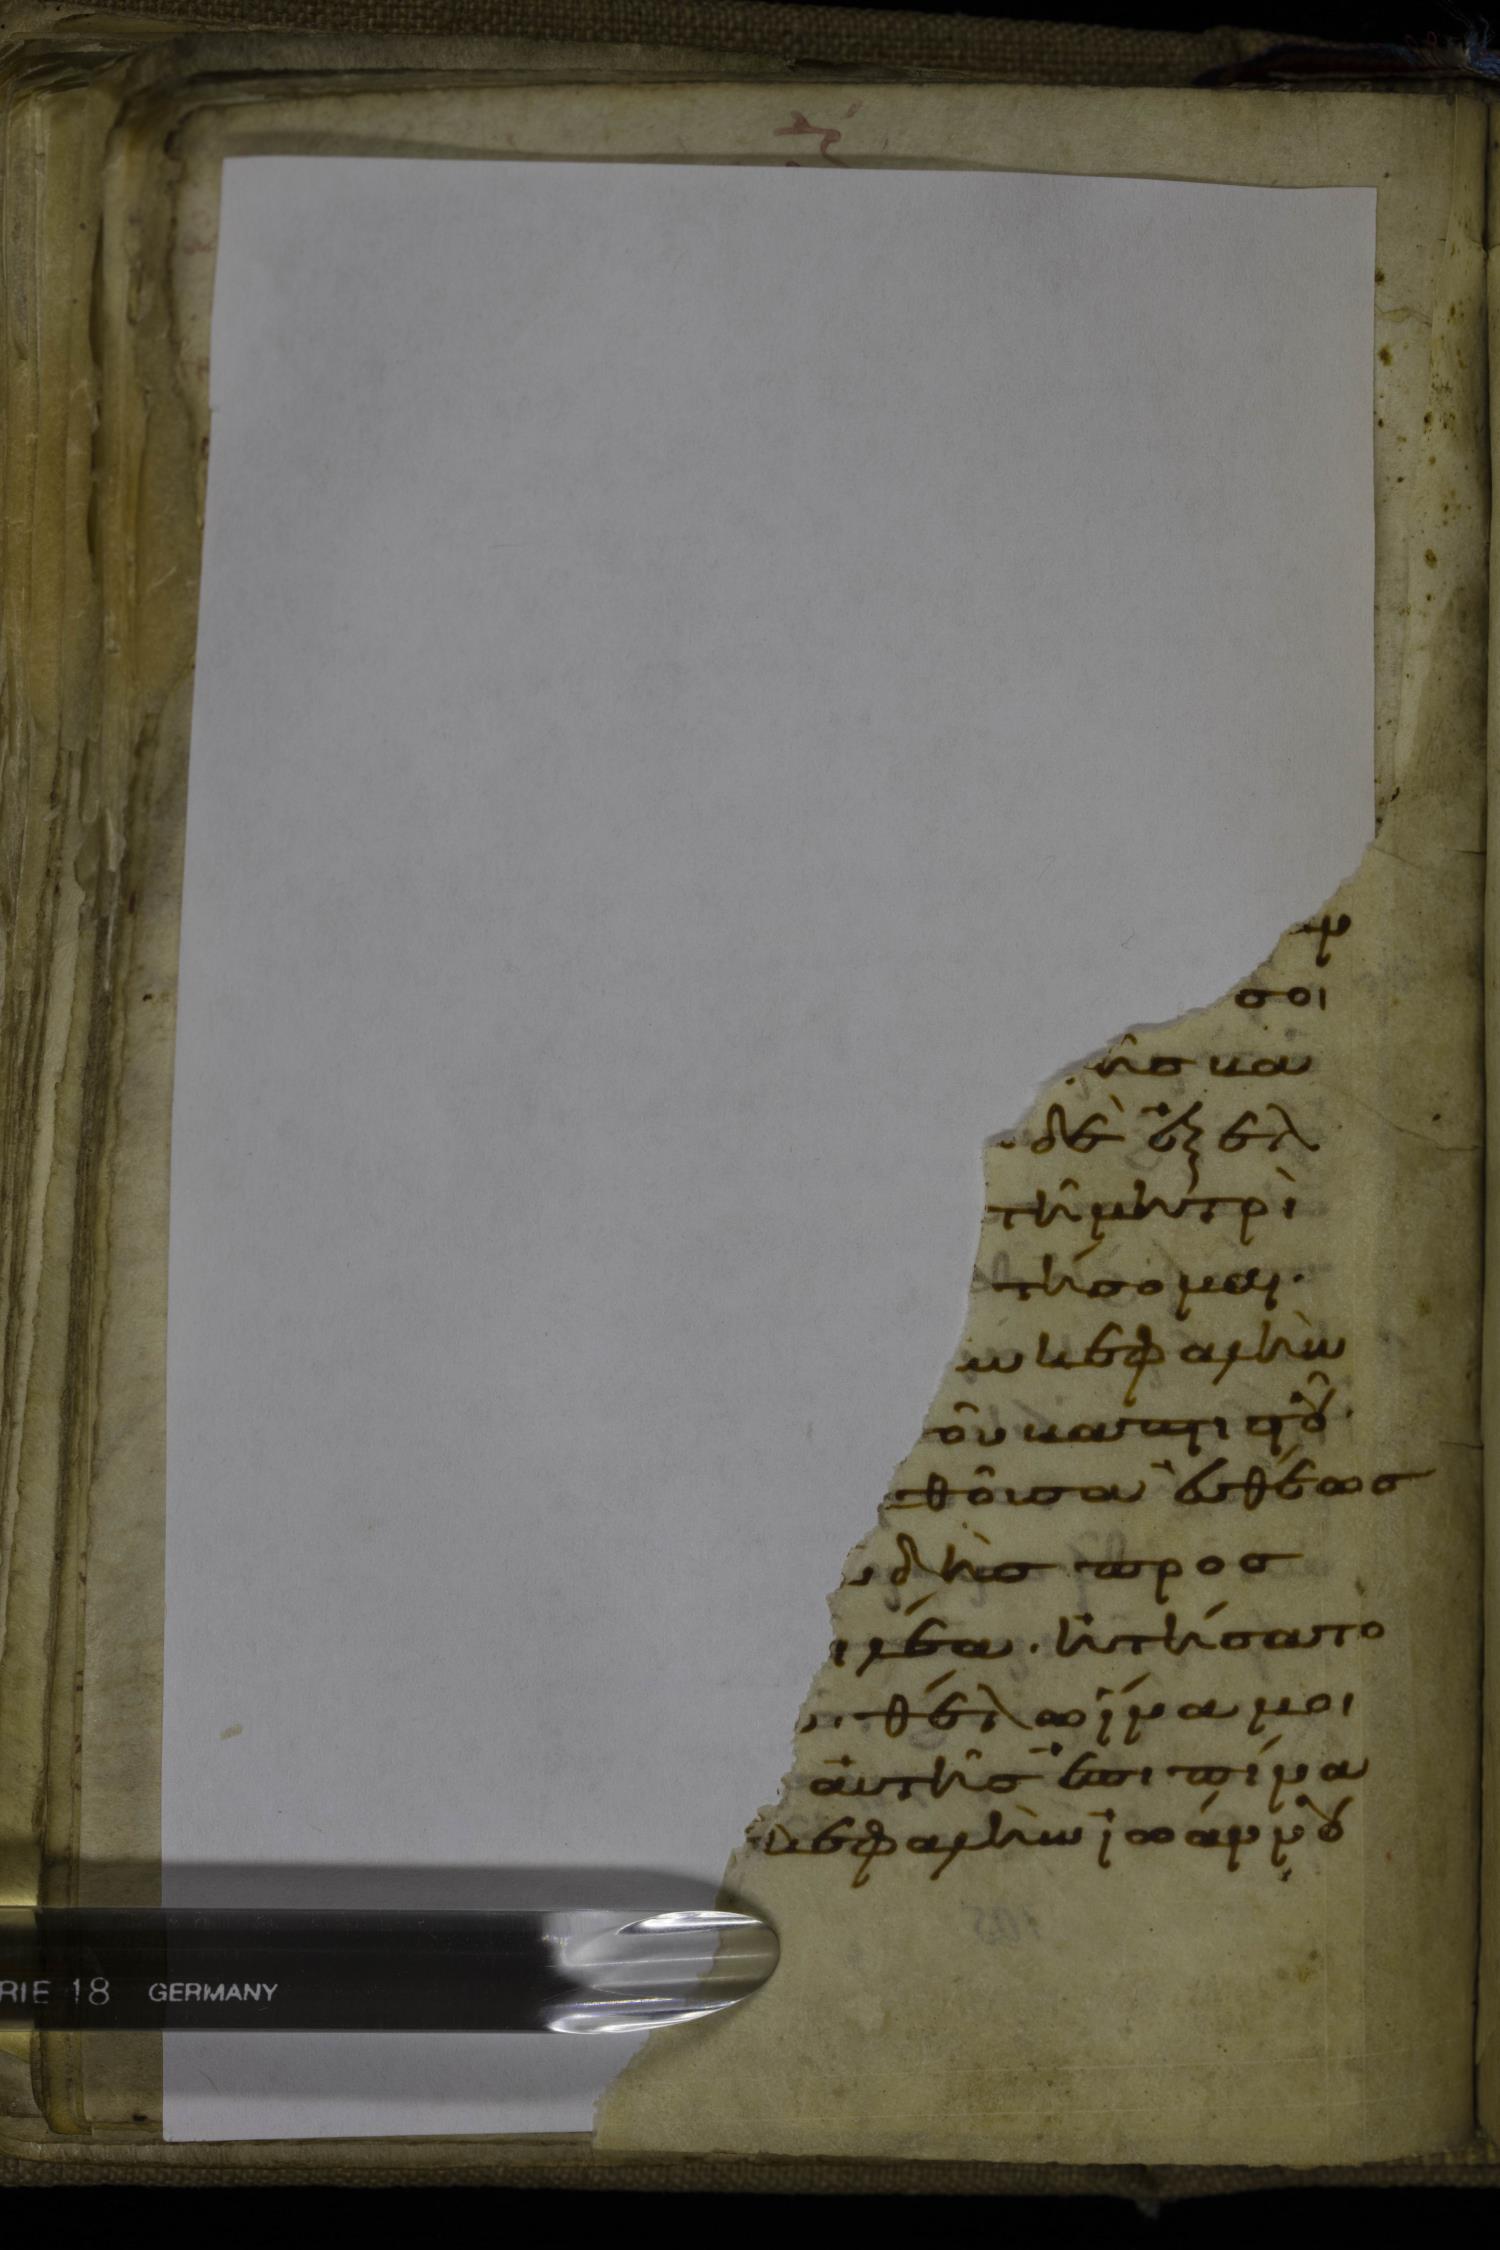 αρ
σοι
ης και
δὲ ἐξελ
τῆ μητρὶ
τήσομαι.
ν κεφαλὴν
οῦ βαπτιστοῦ.
θοῦσα ἐυθέως
δῆς προς
λέα. ἠτήσατο
θέλω ἵνα μοι
ἀυτῆς ἐπι πίνα
κεφαλὴν ἰωάννου
RIE 18 GERMANY